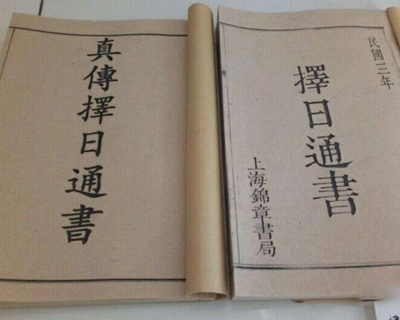 真傳擇日通書
民國三年
擇日通書
上海錦章書局